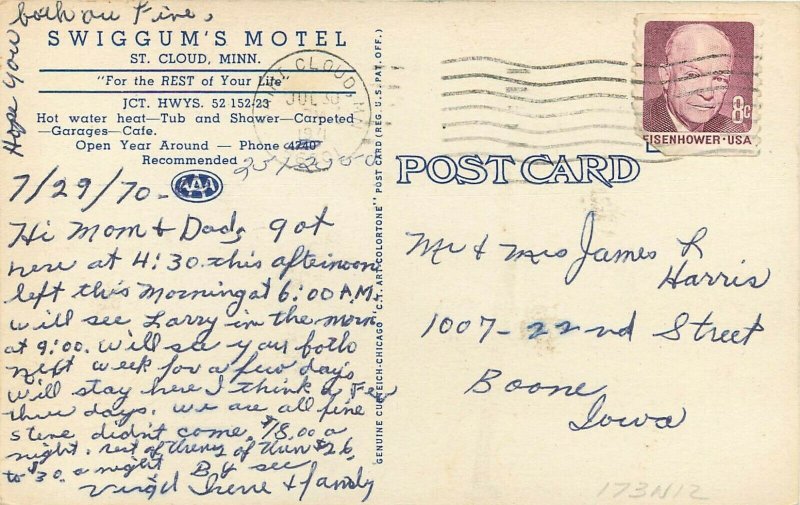 Hope you
both are Fine,
SWIGGUM'S MOTEL
ST. CLOUD, MINN.
"For the REST of Your Life"
JCT. HWYS. 52 152-23
Hot water heat—Tub and Shower—Carpeted
—Garages—Cafe.
Open Year Around — Phone 4740
Recommended
AAA
7/29/70-
Hi Mom & Dad, got
here at 4:30 this afternoon
left this Morning at 6:00 A.M.
will see Larry in the morn
at 9:00. will see you both
next week for a few days
will stay here I think a Few
three days. we are all fine
Steve didn't come. $18.00 a
night. rest of them $26.
to $30. a night By see
Irene &
GENUINE CURTEICH-CHICAGO "C.T. ART-COLORTONE" POST CARD (REG. U.S. PAT. OFF.)
ST CLOUD, MN
JUL 30
8c
EISENHOWER·USA
POST CARD
Mr & Mrs James R
Harris
1007-22nd Street
Boone
Iowa
173N12